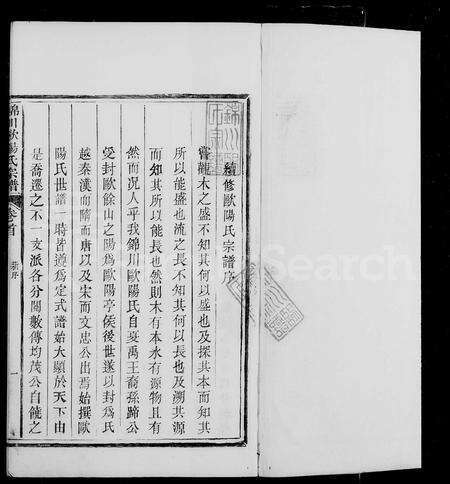 續修歐陽氏宗譜序
嘗觀木之盛不知其何以盛也及探其本而知其
所以能盛也流之長不知其何以長也及溯其源
而知其所以能長也然則木有本水有源物且有
然而況人乎我錦川歐陽氏自夏禹王裔孫蹄公
受封歐餘山之陽為歐陽亭侯後世遂以封為氏
越秦漢而隋而唐以及宋而文忠公出焉始撰歐
陽氏世譜一時皆遵為定式譜始大顯於天下由
是喬遷之不一支派各分閱數傳均茂公自饒之
錦川歐陽氏宗譜
卷首
序
一
Search